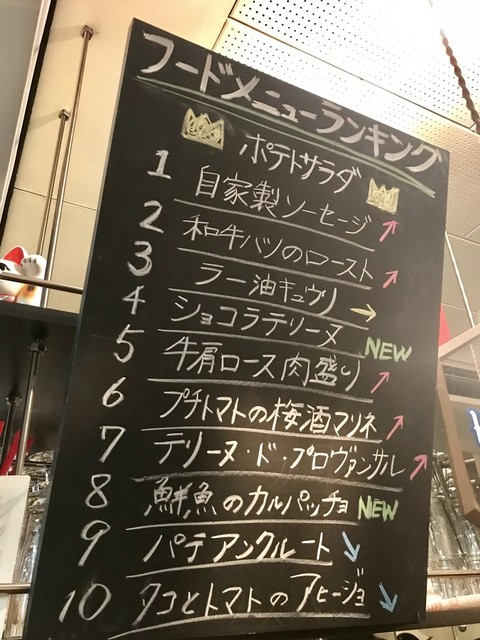 フードメニューランキング
ポテトサラダ
1 自家製ソーセージ
2 和牛ハツのロースト
3 ラー油キュウリ
4 ショコラテリーヌ NEW
5 牛肩ロース肉盛り
6 プチトマトの梅酒マリネ
7 テリーヌ・ド・プロヴァンサル
8 鮮魚のカルパッチョ NEW
9 パテアンクルート
10 タコとトマトのアヒージョ